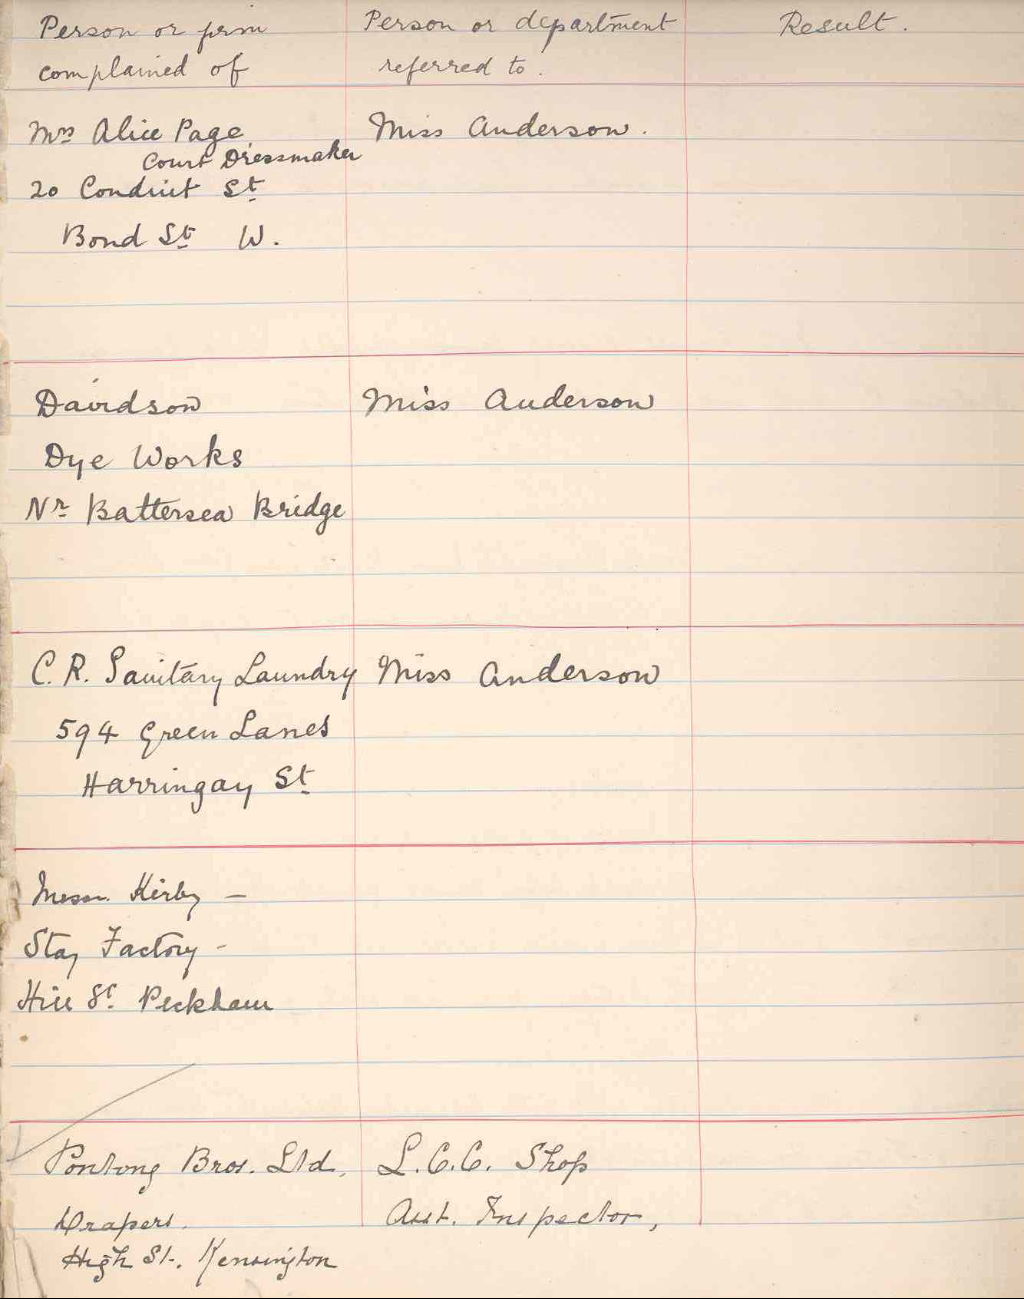 Person or firm
complained of
Person or department
referred to.
Result.
Mrs Alice Page
Court Dressmaker
20 Conduit St
Bond St W.
Miss Anderson.
Davidson
Dye Works
Nr Battersea Bridge
Miss Anderson
C. R. Sanitary Laundry
594 Green Lanes
Harringay St
Miss Anderson
Messrs. Kirby —
Stay Factory -
Hill St. Peckham
Pontong Bros. Ltd,
Drapers.
High St. Kensington
L.C.C. Shop
Asst. Inspector,